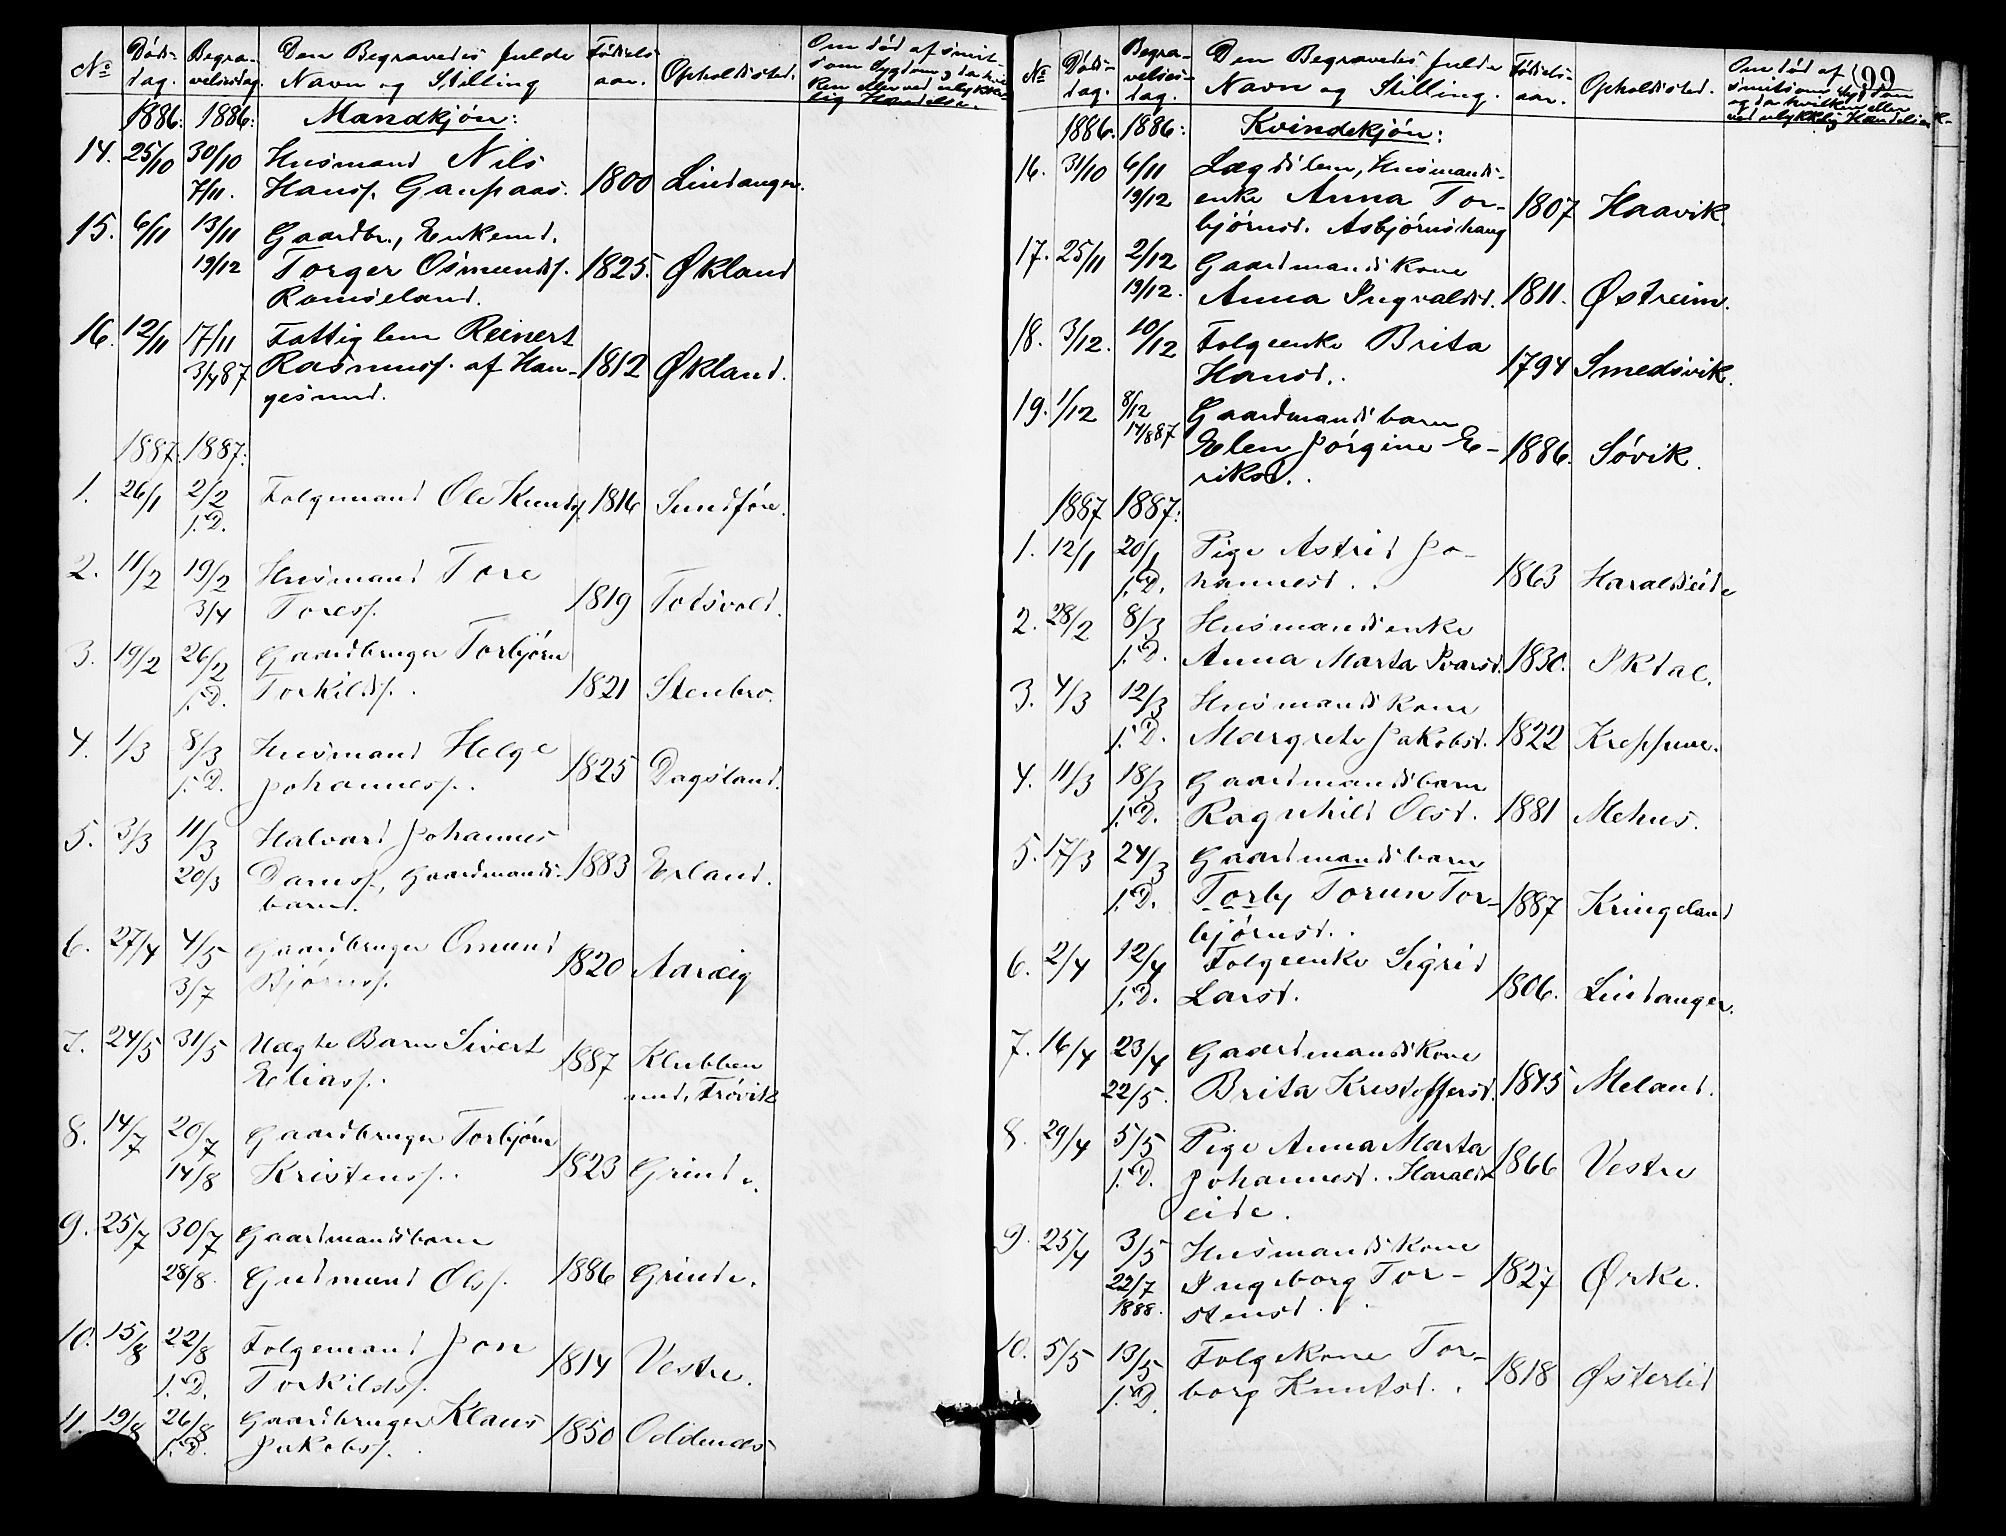 No
Døds-
dag.
Begra-
velsesdag.
Den Begravedes fulde
Navn og Stilling
Fødsels-
aar.
Opholdssted.
Om død af smit-
som Sygdom, og da hvil-
ken eller ved ulykke-
lig Hændelse.
1886. 1886: Mandkjøn:
14. 25/10 30/10 Husmand Nils
7/11. Hansf. Gaupaas. 1800 Lindanger.
15. 6/11 13/11 Gaardbr., Enkemd.
19/12 Torger Osmundsf. 1825. Økland
Ramseland.
16. 12/11 17/11 Fattiglem Reinert
3/4 87 Rasmusf. af Hau- 1812 Økland.
gesund.
1887. 1887:
1. 26/1 2/2 Folgemand Ole Knudsf. 1816 Sundføre.
s. D.
2. 11/2 19/2 Husmand Tore
3/4 Toresf. 1819 Todsvold.
3. 19/2 26/2 Gaardbruger Torbjørn
s. D. Torkildsf. 1821 Stenbro.
4. 1/3 8/3 Husmand Helge
s. D. Johannesf. 1825 Dagsland.
5. 3/3 11/3 Halvard Johannes
20/3 Danesf., Gaardmands- 1883 Erland.
barn.
6. 27/4 4/5 Gaardbruger Omund
3/7 Bjørnsf. 1820 Aarvig
7. 24/5 31/5 Uægte Barn Sivert
Eliasf. 1887 Klubben
und. Frøvik
8. 14/7 20/7 Gaardbruger Torbjørn
14/8 Kristensf. 1823 Grinde.
9. 25/7 30/7 Gaardmandsbarn
28/8. Gudmund Olsf. 1886 Grinde.
10. 15/8 22/8 Folgemand Jon
s. D. Torkildsf. 1814 Vestre.
11. 19/8 26/8 Gaardbruger Klaus
s. D. Jakobsf. 1850 Oddenæs
99
No
Døds-
dag.
Begra-
velses-
dag.
Den Begravedes fulde
Navn og Stilling.
Fødsels-
aar.
Opholdssted.
Om død af
smitsom Sygdom
og da hvilken eller
ved ulykkelig Hændelse.
1886. 1886: Kvindekjøn:
16. 31/10 6/11 Lægdslem, Husmands-
19/12 enke Anna Tor- 1807 Haavik.
bjørnsd. Asbjørnshaug
17. 25/11 2/12 Gaardmandskone
19/12. Anna Ingvaldsd. 1811. Østreim.
18. 3/12. 10/12 Folgeenke Brita
Hansd. 1794 Smedsvik.
19. 1/12 8/12 Gaardmandsbarn
14/8 87 Elen Jørgine E- 1886. Søvik.
riksd.
1887 1887:
1. 12/1 20/1 Pige Astrid Jo-
s. D. hannesd. 1863 Haraldseide
2. 28/2 8/3 Husmandsenke
s. D. Anna Marta Ivarsd. 1830. Ikdal.
3. 4/3 12/3 Husmandskone
s. D. Margrete Jakobsd. 1822
4. 11/3 18/3 Gaardmandsbarn
s. D. Ragnhild Olsd. 1881 Mehus.
5. 17/3 24/3 Gaardmandsbarn
s. D. Torby Torun Tor- 1887 Kringeland
bjørnsd.
6. 2/4 12/4 Folgeenke Sigrid
s. D. Larsd. 1806. Lindanger.
7. 16/4 23/4 Gaardmandskone
22/5. Brita Kristoffersd. 1845 Meland.
8. 29/4 5/5 Pige Anna Marta
s. D. Johannesd. Haralds- 1866 Vestre
eide.
9. 25/4 3/5 Husmandskone
22/7 Ingeborg Tor- 1827 Ørke.
1888. stensd.
10. 5/5 13/5 Folgekone Tor-
s. D. borg Knutsd. 1818 Østerlid